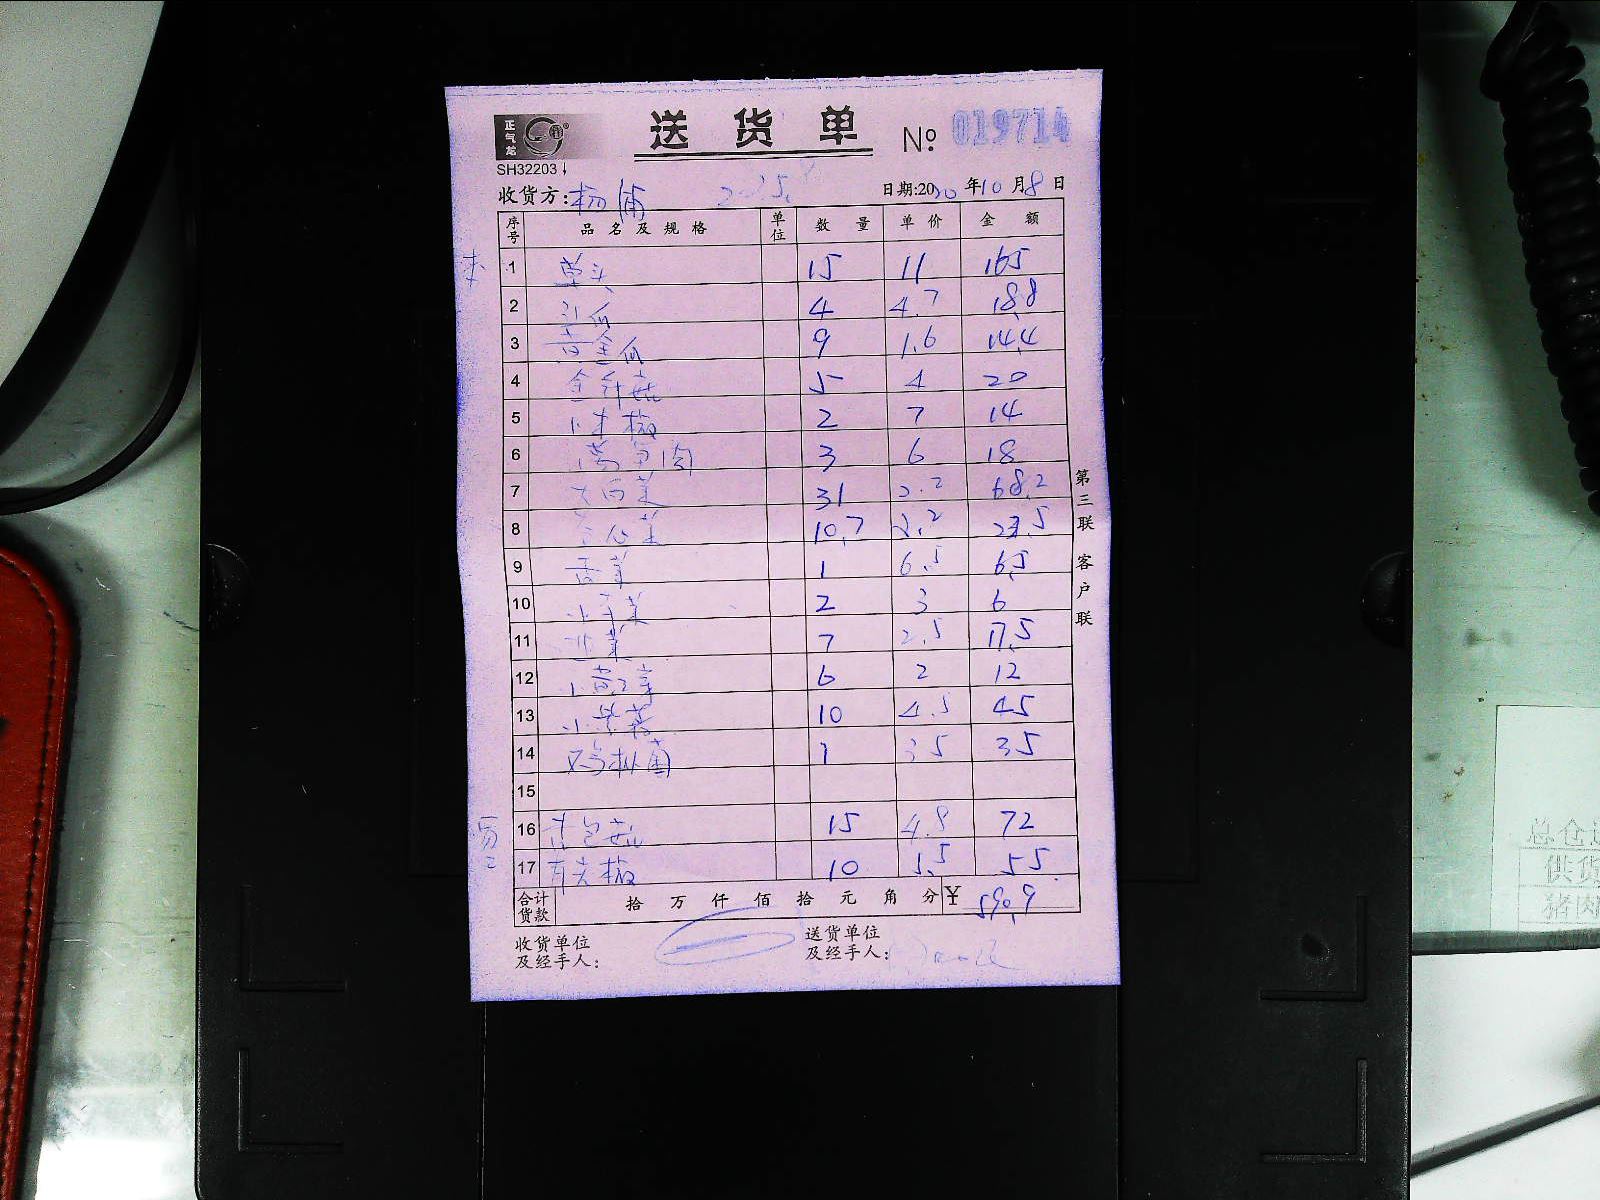 正气龙
送货单 № 019714
SH32203
收货方:杨浦 日期:2020年10月8日
序号 品名及规格 单位 数量 单价 金额
1 草头 15 11 165
2 瓜 4 4.7 18.8
3 黄金瓜 9 1.6 14.4
4 金针菇 5 4 20
5 小米椒 2 7 14
6 3 6 18
7 大白菜 31 2.2 68.2
8 菜 10.7 2.2 23.5
9 香菜 1 6.5 6.5
10 菜 2 3 6
11 菜 7 2.5 17.5
12 小 6 2 12
13 小 10 4.5 45
14 鸡枞菌 1 35 35
15
16 杏包菇 15 4.8 72
17 青尖椒 10 5.5 55
合计货款 拾 万 仟 佰 拾 元 角 分 ¥ 590.9
收货单位及经手人: 送货单位及经手人:
第三联 客户联
总仓
供货
猪肉